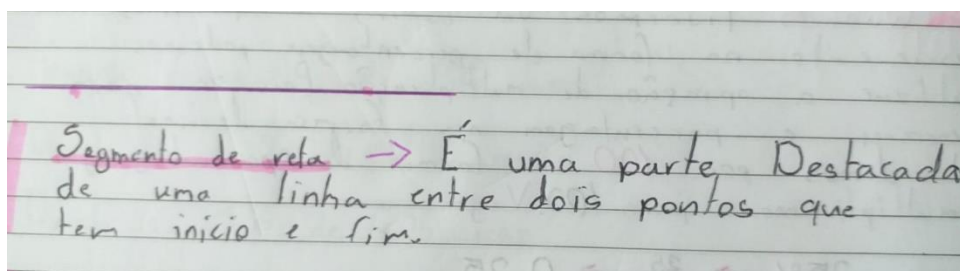 Segmento de reta → É uma parte Destacada
de uma linha entre dois pontos que
tem inicio e fim.